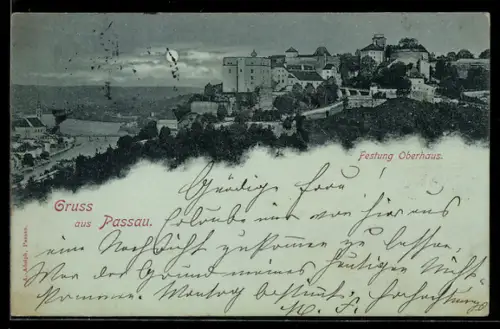 Festung Oberhaus.
Gruss
aus Passau.
Gnädige Frau!
Erlaube mir von hier aus
eine Nachricht zukommen zu lassen.
War der Grund meines heutigen Nicht-
kommens. Montag bestimmt.
M. F.